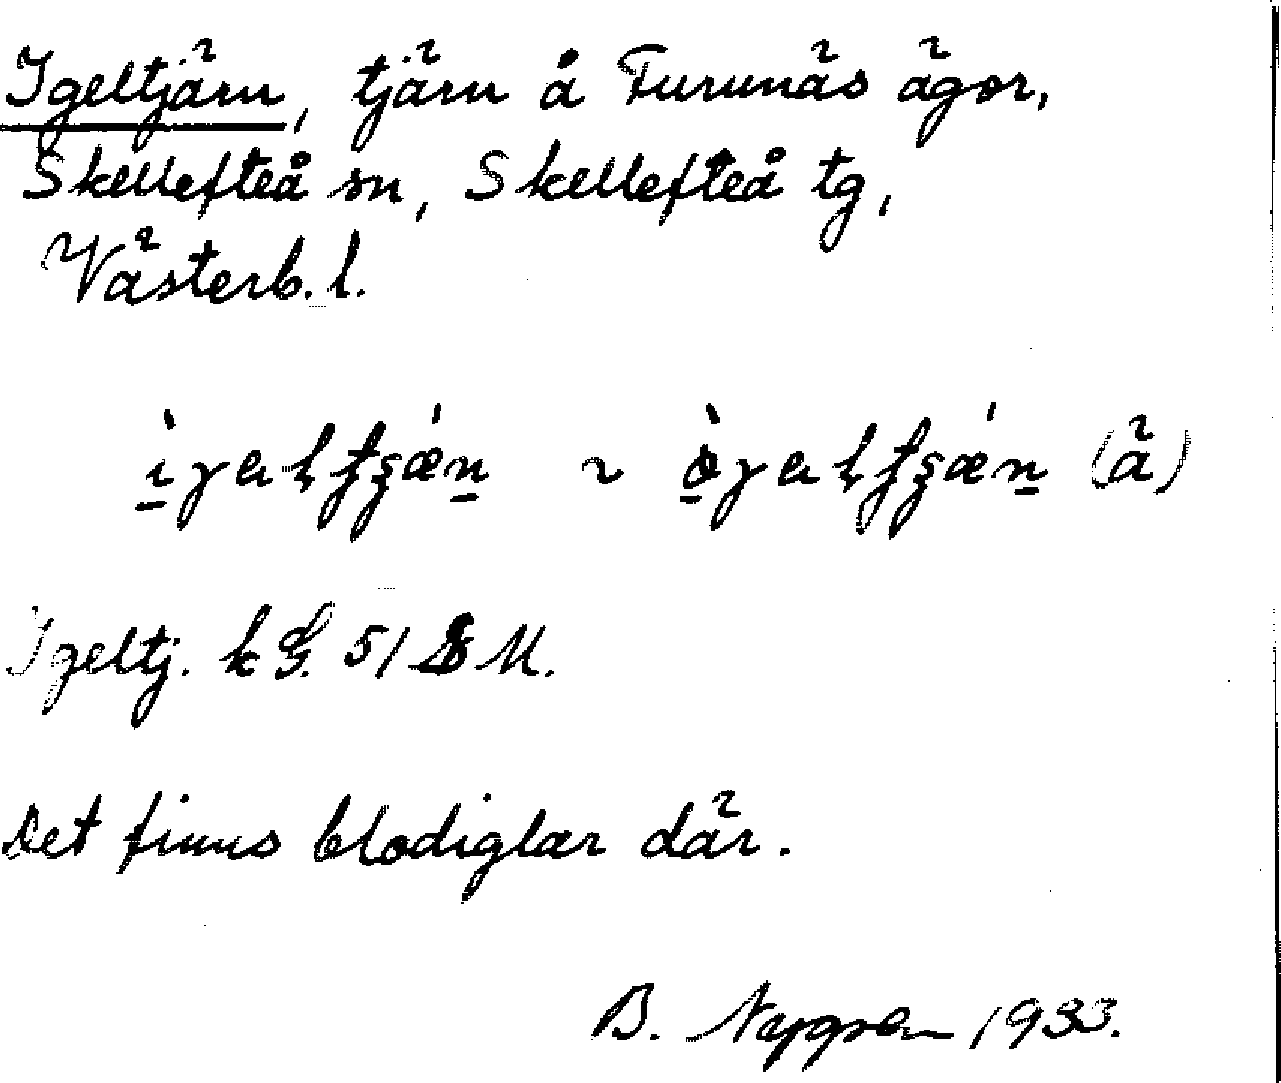 Igeltjärn, tjärn å Furunäs ägor,
Skellefteå sn, Skellefteå tg,
Västerb. l.
(ä)
Igeltj. k
Det finns blodiglar där.
B. Nygren 1933.